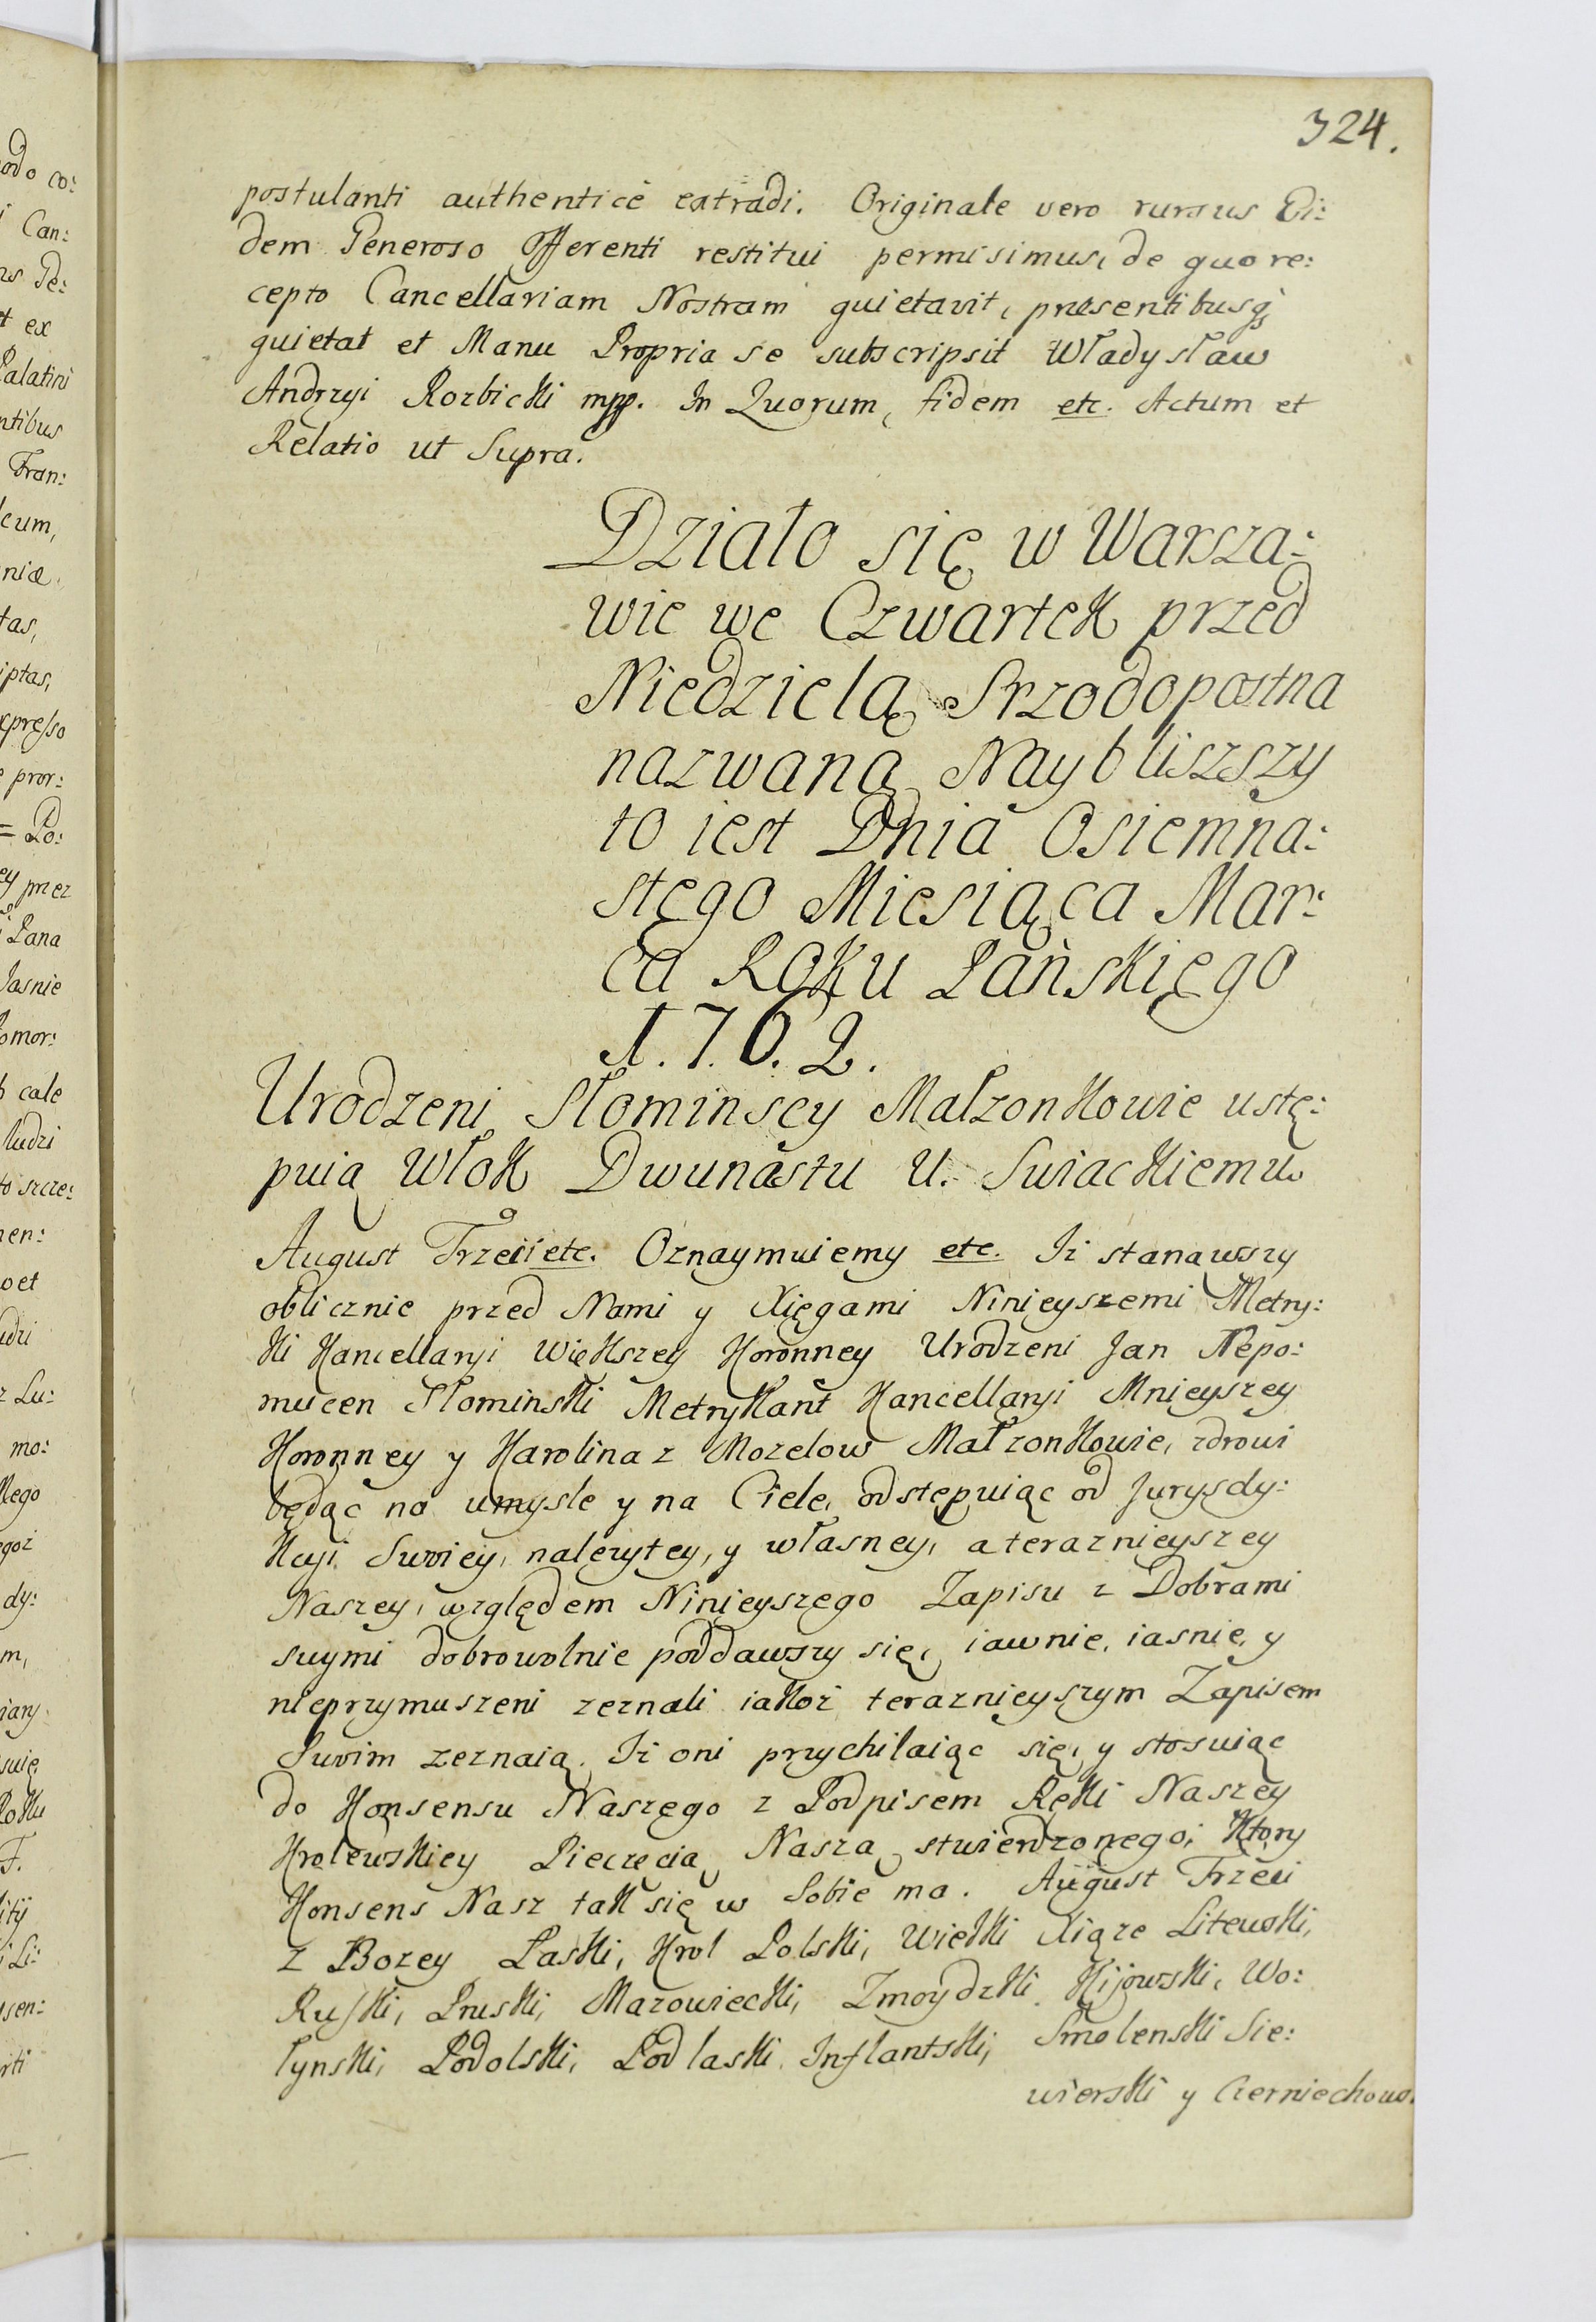 324.
postulanti authenticè extradi. Originale vero rursus Ei:
dem Generoso Offerenti restitui permisimus, de quo re:
cepto Cancellariam Nostram quietavit, præsentibusq;
quietat et Manu Propria se subscripsit Władysław
Andrzyi Rozbicki mpp. In Quorum, fidem etc. Actum et
Relatio ut Supra.
Działo się w Warsza:
wie we Czwartek przed
Niedzielą Srzodopostna
nazwaną Naybliszszy
to iest Dnia Osiemna:
stego Miesiąca Mar:
ca Roku Pańskiego
1.7.6.2.
Urodzeni Słominscy Małzonkowie ustę:
puią Włok Dwunastu U. Swiackiemu
August Trzeci etc. Oznaymuiemy etc. Iż stanąwszy
oblicznie przed Nami y Xięgami Ninieyszemi Metry:
ki Kancellaryi Większey Koronney Urodzeni Jan Nepo:
mucen Słominski Metrykant Kancellaryi Mnieyszey
Koronney y Karolina z Mozelow Małzonkowie, zdrowi
będąc na umysle y na Ciele, odstępuiąc od Jurysdy:
kcyi Swoiey, należytey, y własney, a teraznieyszey
Naszey, względem Ninieyszego Zapisu z Dobrami
swymi dobrowolnie poddawszy się, iawnie, iasnie, y
nieprzymuszeni zeznali iakoż teraznieyszym Zapisem
Swoim zeznaią. Iż oni przychilaiąc się, y stosuiąc
do Konsensu Naszego z Podpisem Ręki Naszey
Krolewskiey Pieczęcią Naszą stwierdzonego, Ktory
Konsens Nasz tak się w Sobie ma. August Trzeci
z Bozey Łaski, Krol Polski, Wielki Xiąze Litewski,
Ruski, Pruski, Mazowiecki, Zmoydzki Kijowski, Wo:
łynski, Podolski, Podlaski Inflantski, Smolenski Sie:
wierski y Czerniechows.